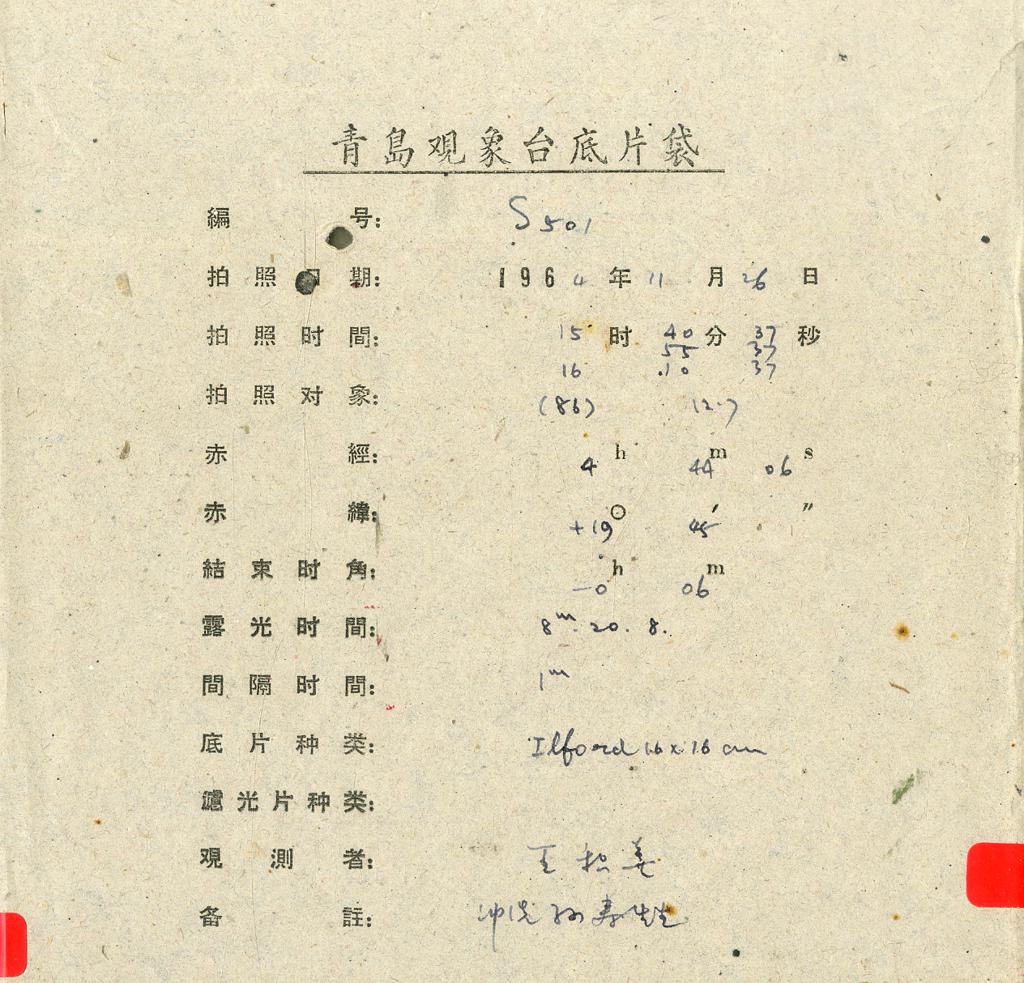 青島观象台底片袋
編 号: S501
拍照日期: 1964年11月26日
拍照时間: 15时40分37秒
55 37
16 10 37
拍照对象: (86) 12.7
赤 經: 4h 44m 06s
赤 緯: +19° 45′ ″
結束时角: -0h 06m
露光时間: 8m. 20. 8.
間隔时間: 1m
底片种类: Ilford 16x16 cm
濾光片种类:
观測者: 王
备 註: 冲洗 孙寿